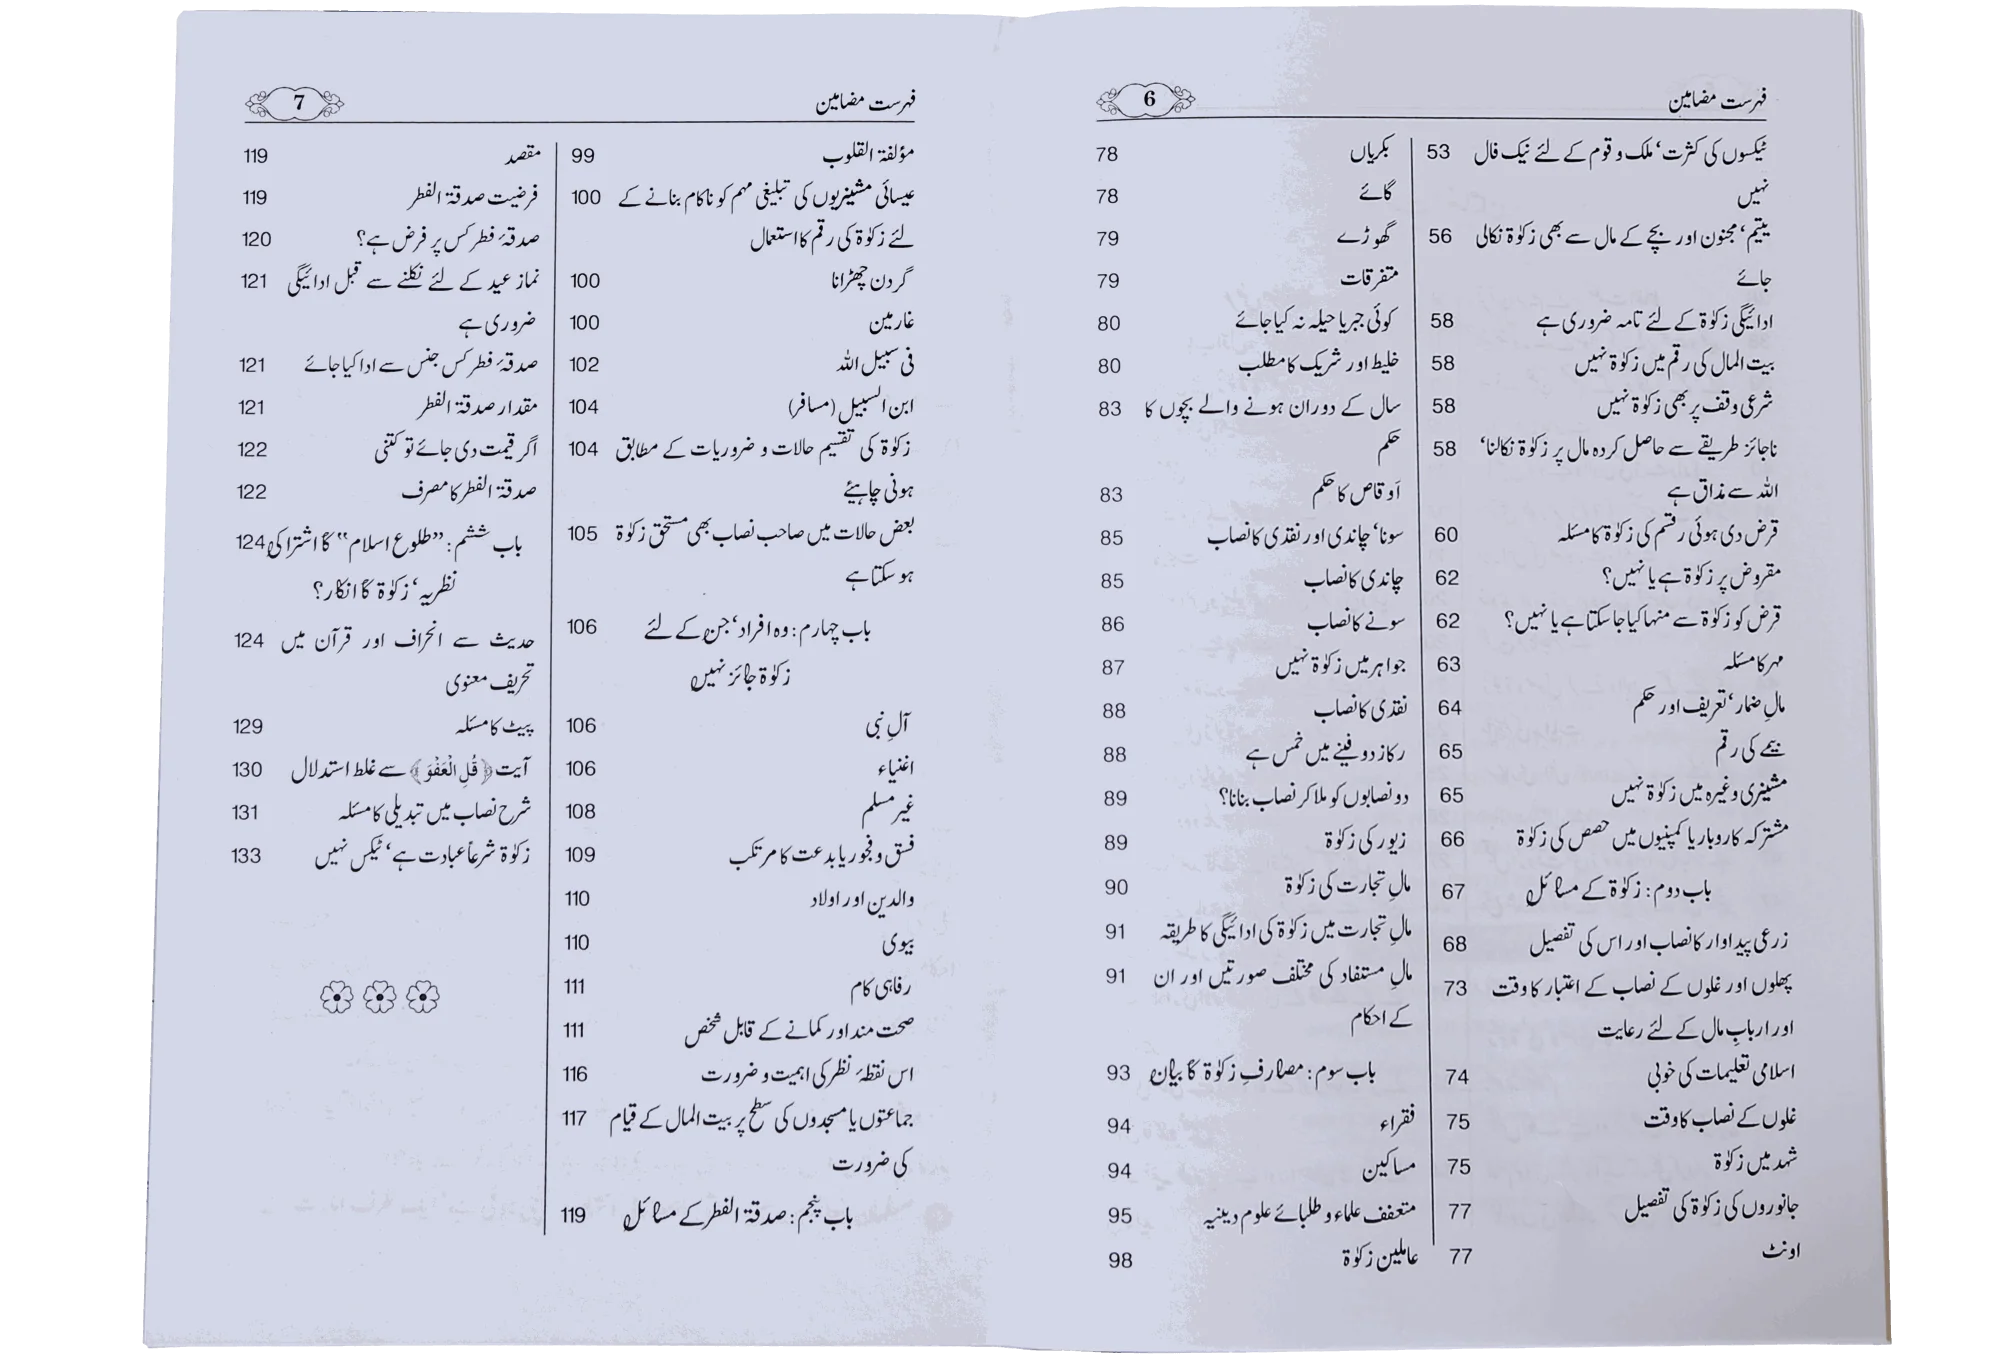 فہرست مضامین 6
ٹیکسوں کی کثرت، ملک و قوم کے لئے نیک فال 53
نہیں
یتیم، مجنون اور بچے کے مال سے بھی زکوٰۃ نکالی 56
جائے
ادائیگی زکوٰۃ کے لئے نامہ ضروری ہے 58
بیت المال کی رقم میں زکوٰۃ نہیں 58
شرعی وقف پر بھی زکوٰۃ نہیں 58
ناجائز طریقے سے حاصل کردہ مال پر زکوٰۃ نکالنا، 58
اللہ سے مذاق ہے
قرض دی ہوئی رقم کی زکوٰۃ کا مسئلہ 60
مقروض پر زکوٰۃ ہے یا نہیں؟ 62
قرض کو زکوٰۃ سے منہا کیا جا سکتا ہے یا نہیں؟ 62
مہر کا مسئلہ 63
مالِ ضمار، تعریف اور حکم 64
بیمے کی رقم 65
مشینری وغیرہ میں زکوٰۃ نہیں 65
مشترکہ کاروبار یا کمپنیوں میں حصص کی زکوٰۃ 66
باب دوم: زکوٰۃ کے مسائل 67
زرعی پیداوار کا نصاب اور اس کی تفصیل 68
پھلوں اور غلوں کے نصاب کے اعتبار کا وقت 73
اور اربابِ مال کے لئے رعایت
اسلامی تعلیمات کی خوبی 74
غلوں کے نصاب کا وقت 75
شہد میں زکوٰۃ 75
جانوروں کی زکوٰۃ کی تفصیل 77
اونٹ 77
بکریاں 78
گائے 78
گھوڑے 79
متفرقات 79
کوئی جبر یا حیلہ نہ کیا جائے 80
خلیط اور شریک کا مطلب 80
سال کے دوران ہونے والے بچوں کا 83
حکم
اَوقاص کا حکم 83
سونا، چاندی اور نقدی کا نصاب 85
چاندی کا نصاب 85
سونے کا نصاب 86
جواہر میں زکوٰۃ نہیں 87
نقدی کا نصاب 88
رکاز دفینے میں خمس ہے 88
دو نصابوں کو ملا کر نصاب بنانا؟ 89
زیور کی زکوٰۃ 89
مالِ تجارت کی زکوٰۃ 90
مالِ تجارت میں زکوٰۃ کی ادائیگی کا طریقہ 91
مالِ مستفاد کی مختلف صورتیں اور ان 91
کے احکام
باب سوم: مصارفِ زکوٰۃ کا بیان 93
فقراء 94
مساکین 94
متعفف علماء و طلبائے علوم دینیہ 95
عاملین زکوٰۃ 98
فہرست مضامین 7
مؤلفۃ القلوب 99
عیسائی مشینریوں کی تبلیغی مہم کو ناکام بنانے کے 100
لئے زکوٰۃ کی رقم کا استعمال
گردن چھڑانا 100
غارمین 100
فی سبیل اللہ 102
ابن السبیل (مسافر) 104
زکوٰۃ کی تقسیم حالات و ضروریات کے مطابق 104
ہونی چاہیئے
بعض حالات میں صاحب نصاب بھی مستحق زکوٰۃ 105
ہو سکتا ہے
باب چہارم: وہ افراد، جن کے لئے 106
زکوٰۃ جائز نہیں
آلِ نبی 106
اغنیاء 106
غیر مسلم 108
فسق و فجور یا بدعت کا مرتکب 109
والدین اور اولاد 110
بیوی 110
رفاہی کام 111
صحت مند اور کمانے کے قابل شخص 111
اس نقطۂ نظر کی اہمیت و ضرورت 116
جماعتوں یا مسجدوں کی سطح پر بیت المال کے قیام 117
کی ضرورت
باب پنجم: صدقۃ الفطر کے مسائل 119
مقصد 119
فرضیت صدقۃ الفطر 119
صدقۂ فطر کس پر فرض ہے؟ 120
نماز عید کے لئے نکلنے سے قبل ادائیگی 121
ضروری ہے
صدقۂ فطر کس جنس سے ادا کیا جائے 121
مقدار صدقۃ الفطر 121
اگر قیمت دی جائے تو کتنی 122
صدقۃ الفطر کا مصرف 122
باب ششم: ”طلوع اسلام“ کا اشتراکی 124
نظریہ، زکوٰۃ کا انکار؟
حدیث سے انحراف اور قرآن میں 124
تحریف معنوی
پیٹ کا مسئلہ 129
آیت ﴿قُلِ الْعَفْوَ﴾ سے غلط استدلال 130
شرح نصاب میں تبدیلی کا مسئلہ 131
زکوٰۃ شرعاً عبادت ہے، ٹیکس نہیں 133